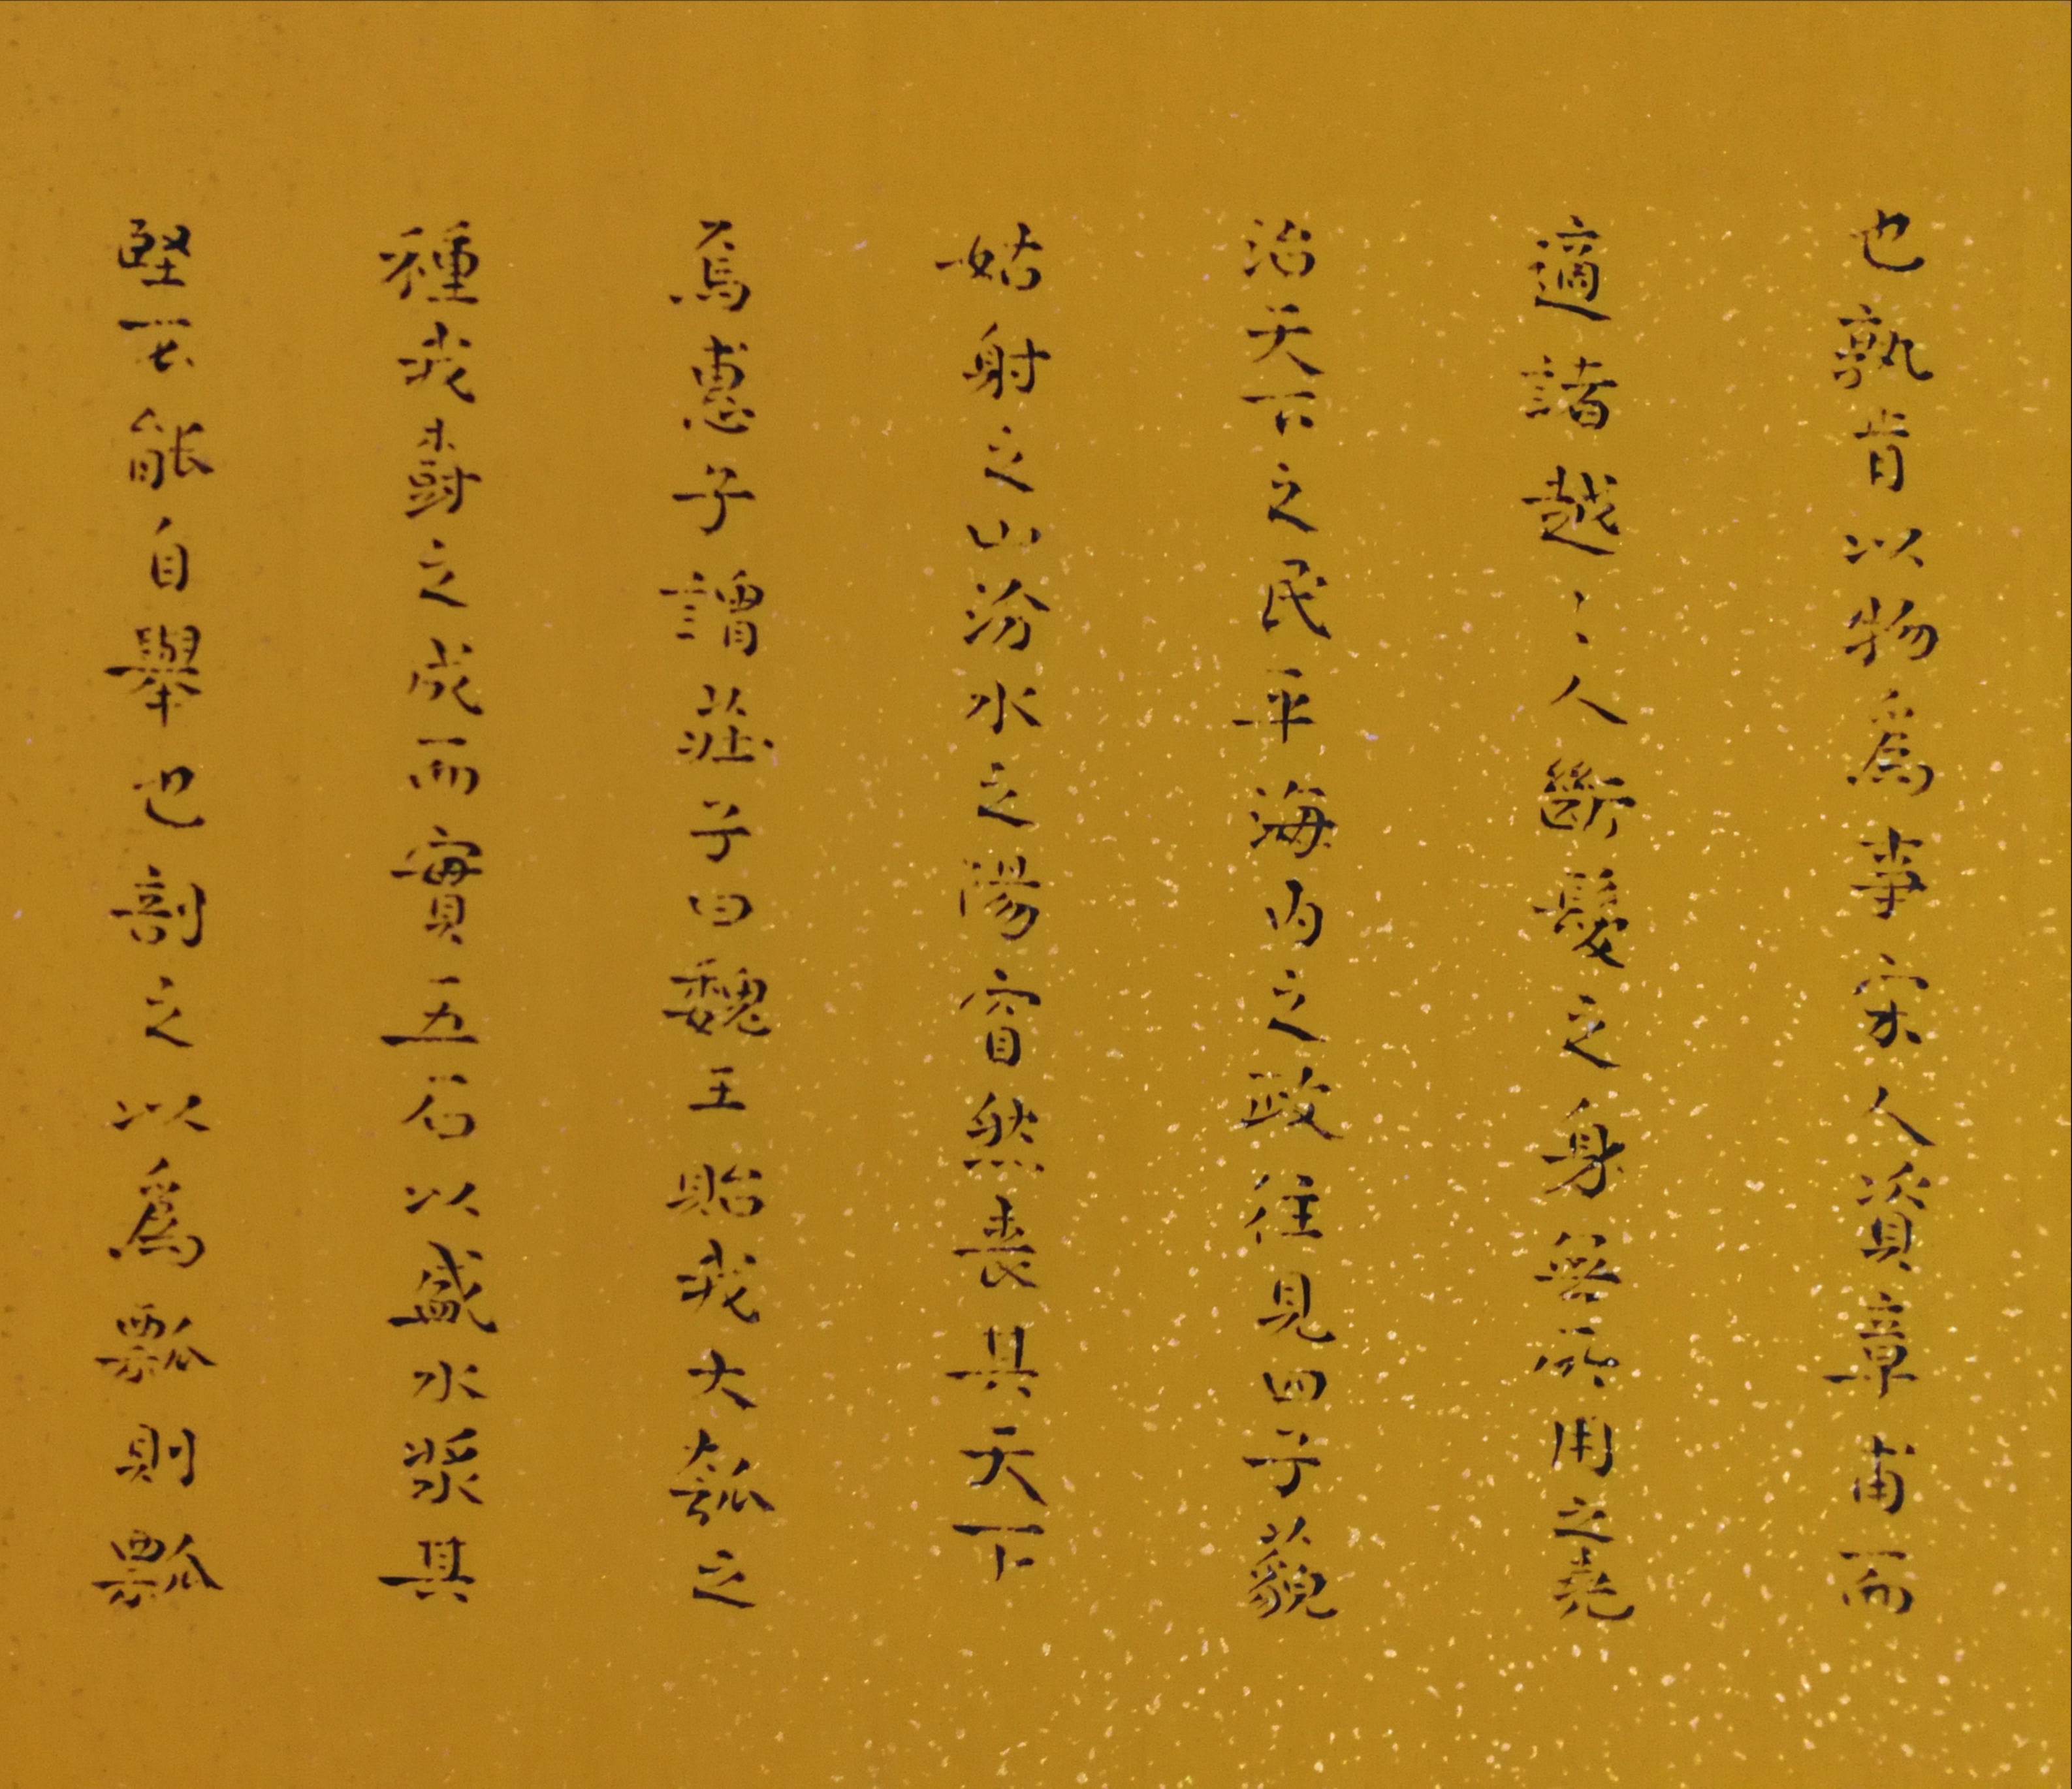 也孰肯以物爲事宋人資章甫而
適諸越〻人斷髮之身無所用之堯
治天下之民平海內之政往見四子藐
姑射之山汾水之陽窅然喪其天下
焉惠子謂莊子曰魏王貽我大瓠之
種我樹之成而實五石以盛水漿其
堅不能自舉也剖之以爲瓢則瓢